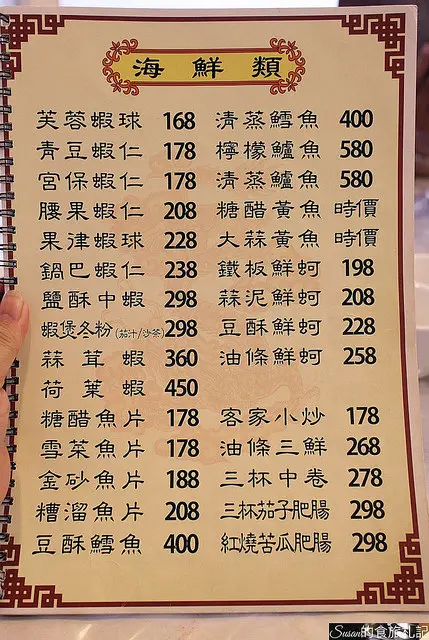 海鮮類
芙蓉蝦球 168
青豆蝦仁 178
宮保蝦仁 178
腰果蝦仁 208
果律蝦球 228
鍋巴蝦仁 238
鹽酥中蝦 298
蝦煲冬粉(茄汁/沙茶)298
蒜茸蝦 360
荷葉蝦 450
糖醋魚片 178
雪菜魚片 178
金砂魚片 188
糟溜魚片 208
豆酥鱈魚 400
清蒸鱈魚 400
檸檬鱸魚 580
清蒸鱸魚 580
糖醋黃魚 時價
大蒜黃魚 時價
鐵板鮮蚵 198
蒜泥鮮蚵 208
豆酥鮮蚵 228
油條鮮蚵 258
客家小炒 178
油條三鮮 268
三杯中卷 278
三杯茄子肥腸 298
紅燒苦瓜肥腸 298
Susan的食旅札記